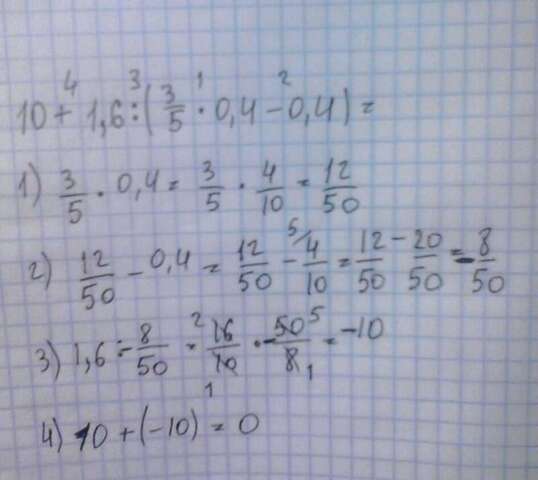 10 + 1,6 : (3/5 · 0,4 - 0,4) =
1) 3/5 · 0,4 = 3/5 · 4/10 = 12/50
2) 12/50 - 0,4 = 12/50 - 4/10 = 12/50 - 20/50 = -8/50
3) 1,6 : -8/50 = 16/10 · -50/8 = -10
4) 10 + (-10) = 0